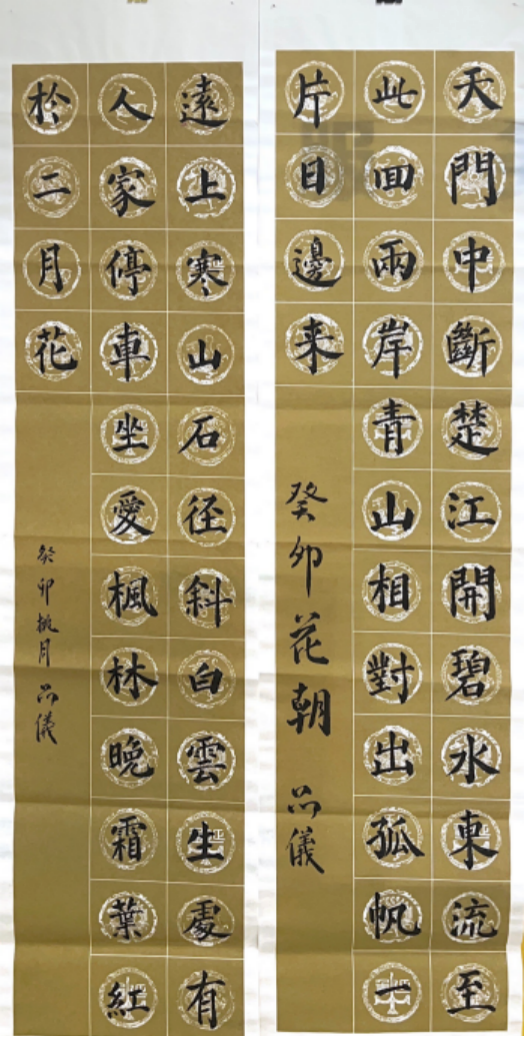 天門中斷楚江開碧水東流至
此囬兩岸青山相對出孤帆一
片日邊来
癸卯花朝 品儀
遠上寒山石径斜白雲生處有
人家停車坐愛楓林晚霜葉紅
於二月花
癸卯桃月 品儀